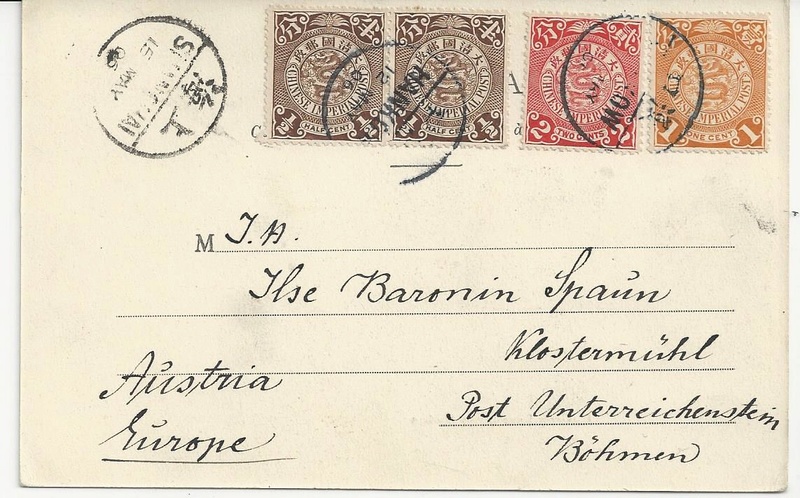 SHANGHAI
15 MAY
06
大清國郵政
CHINESE IMPERIAL POST
1/2 HALF CENT 1/2
大清國郵政
CHINESE IMPERIAL POST
1/2 HALF CENT 1/2
大清國郵政
CHINESE IMPERIAL POST
2 TWO CENTS 2
大清國郵政
CHINESE IMPERIAL POST
1 ONE CENT 1
M I. H.
Ilse Baronin Spaun
Klostermühl
Austria
Post Unterreichenstein
Europe
Böhmen